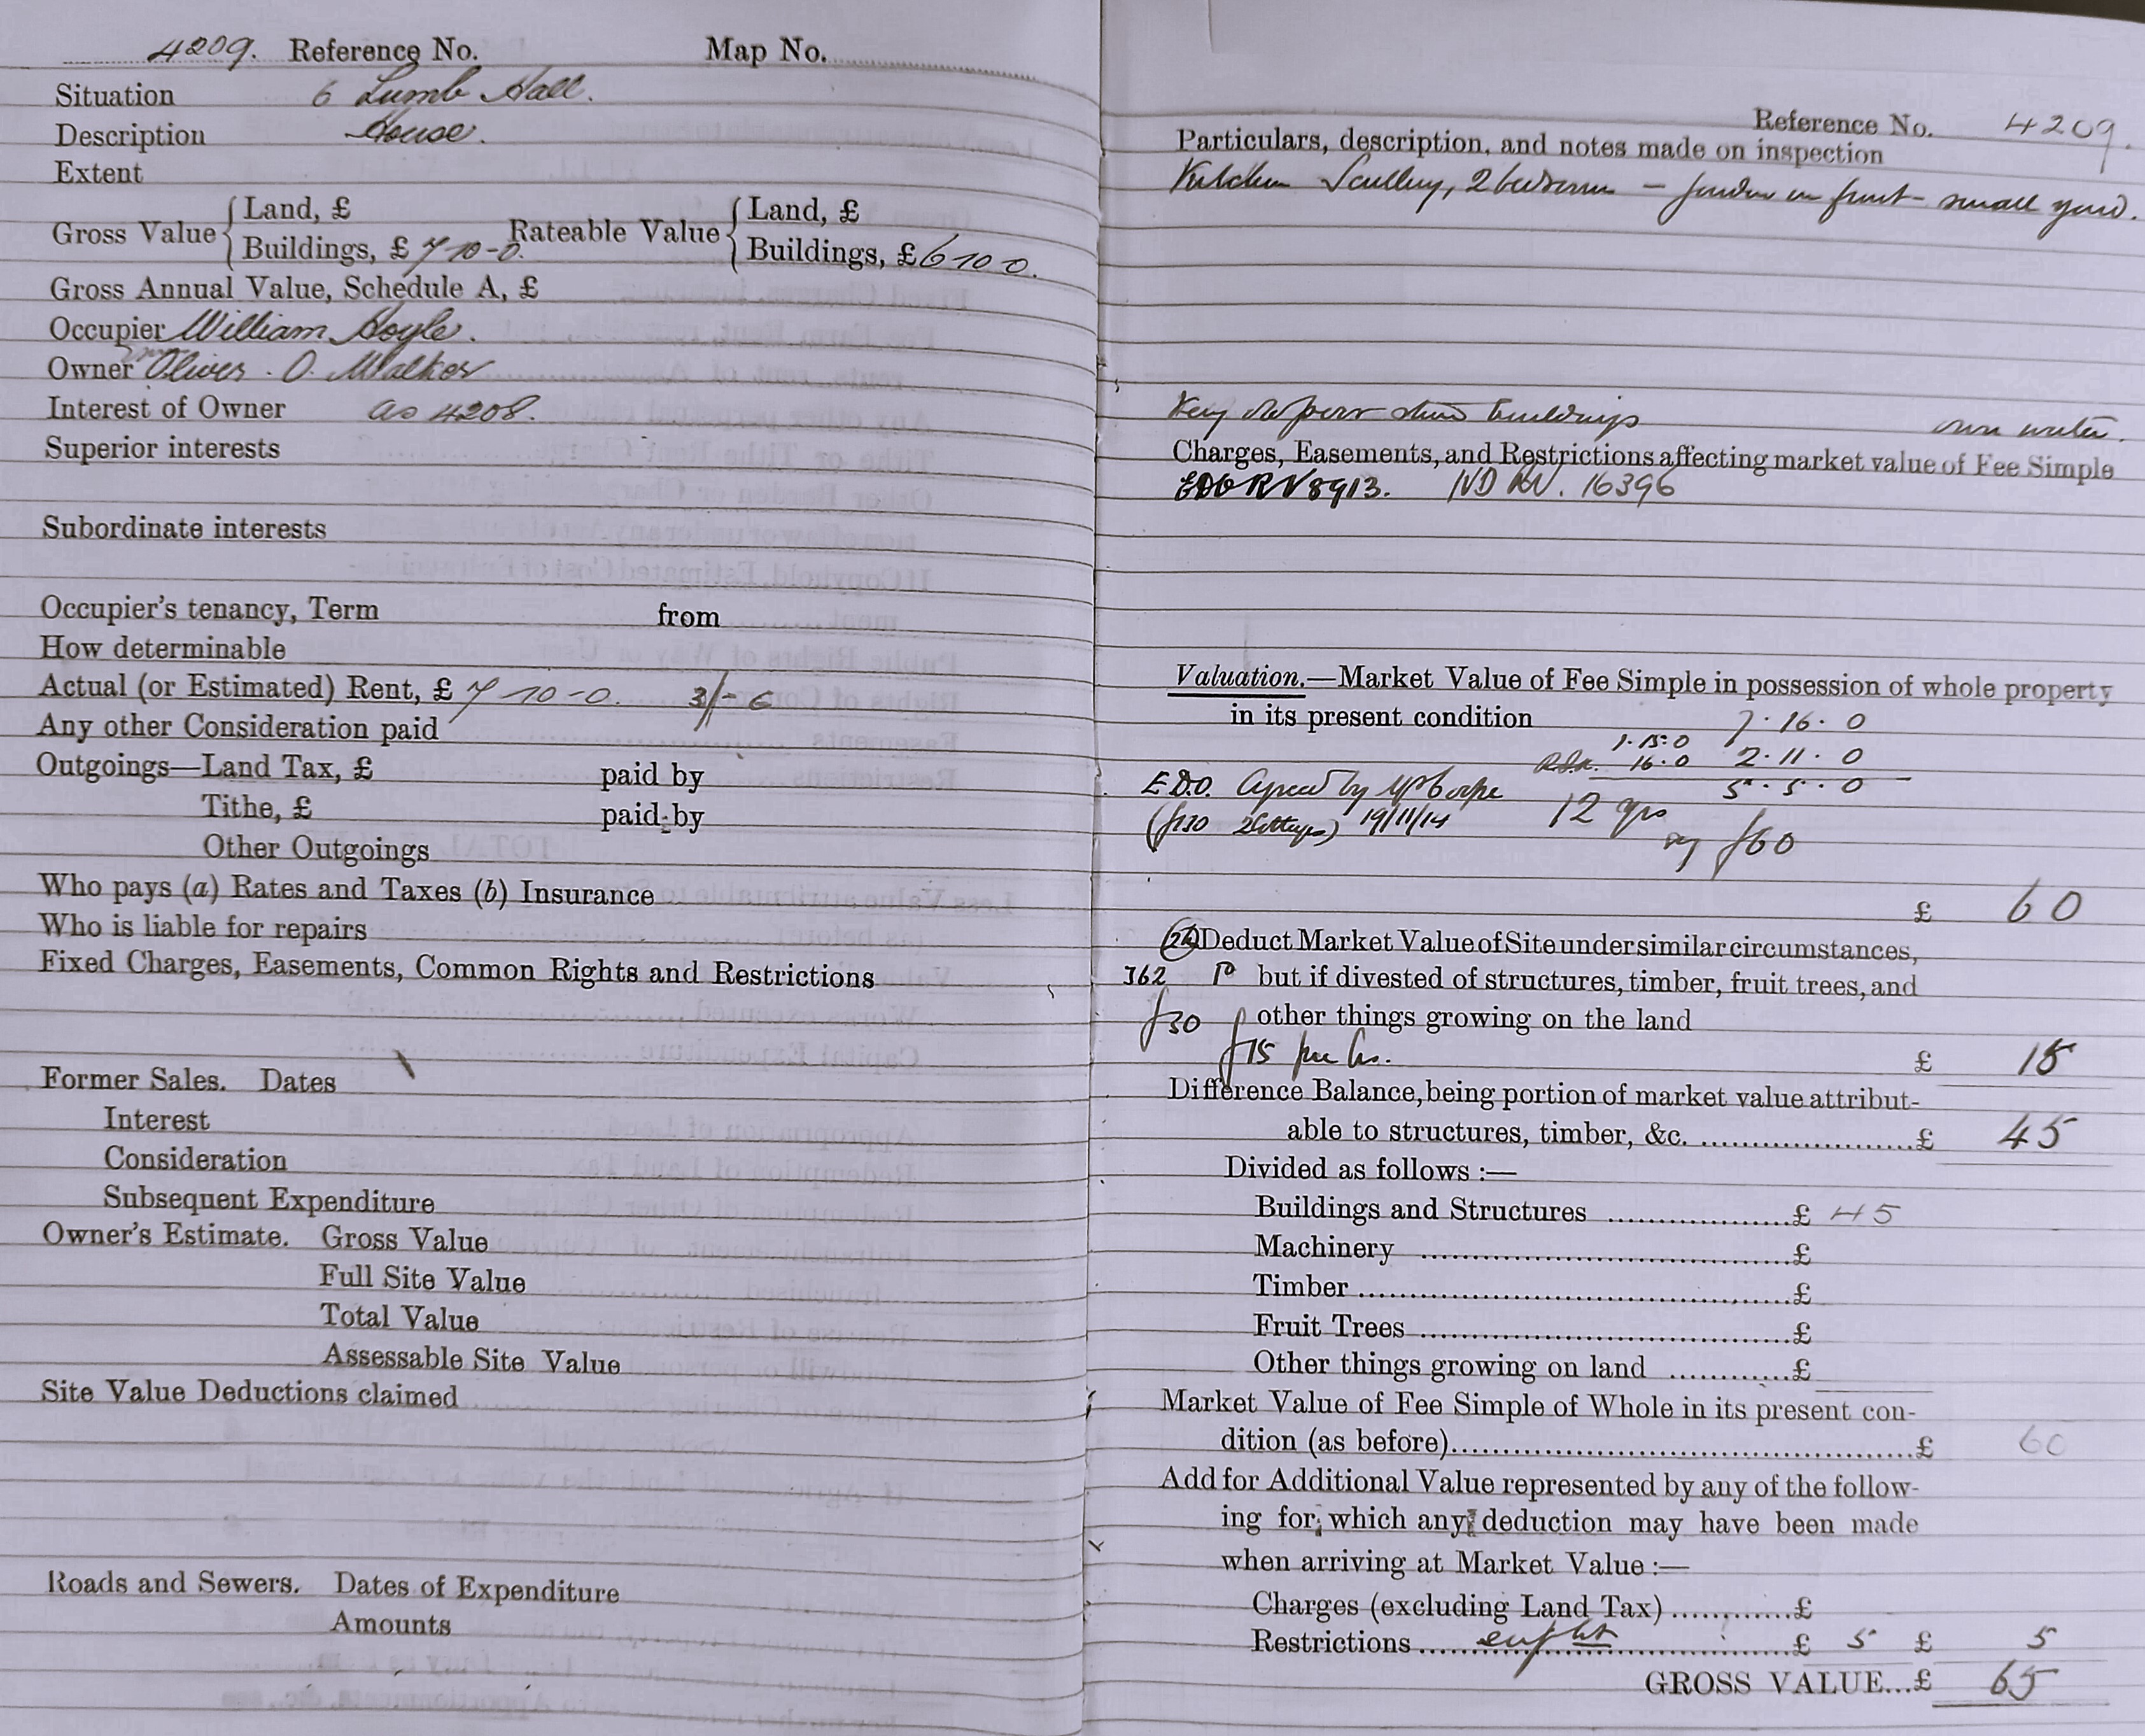 4209. Reference No. Map No.
Situation 6 Lumb Hall.
Description House.
Extent
Gross Value { Land, £ Rateable Value { Land, £
Buildings, £ 7-10-0. Buildings, £ 6 10 0.
Gross Annual Value, Schedule A, £
Occupier William Hoyle.
Owner Oliver. O. Walker
Interest of Owner as 4208.
Superior interests
Subordinate interests
Occupier's tenancy, Term from
How determinable
Actual (or Estimated) Rent, £ 7-10-0. 3/-
Any other Consideration paid
Outgoings—Land Tax, £ paid by
Tithe, £ paid by
Other Outgoings
Who pays (a) Rates and Taxes (b) Insurance
Who is liable for repairs
Fixed Charges, Easements, Common Rights and Restrictions
Former Sales. Dates
Interest
Consideration
Subsequent Expenditure
Owner's Estimate. Gross Value
Full Site Value
Total Value
Assessable Site Value
Site Value Deductions claimed
Roads and Sewers. Dates of Expenditure
Amounts
Reference No. 4209.
Particulars, description, and notes made on inspection
Kitchen Scullery, 2 bedrooms — garden in front - small yard.
Very old poor stone buildings own water.
Charges, Easements, and Restrictions affecting market value of Fee Simple
EDO RV 8913. IVD RV. 16396
Valuation.—Market Value of Fee Simple in possession of whole property
in its present condition 7.16.0
1.15.0 2.11.0
16.0
5.5.0
E.D.O. Agreed by 12 yrs
(£130 2 cottages) 19/11/14
say £60
£ 60
Deduct Market Value of Site under similar circumstances,
362 but if divested of structures, timber, fruit trees, and
£30 other things growing on the land
£15 per hs. £ 15
Difference Balance, being portion of market value attribut-
able to structures, timber, &c. ....................£ 45
Divided as follows :—
Buildings and Structures ....................£ 45
Machinery ........................................£
Timber ...............................................£
Fruit Trees ........................................£
Other things growing on land ............£
Market Value of Fee Simple of Whole in its present con-
dition (as before)..................................................£ 60
Add for Additional Value represented by any of the follow-
ing for which any deduction may have been made
when arriving at Market Value :—
Charges (excluding Land Tax) ............£
Restrictions ........................................£ 5 £ 5
GROSS VALUE...£ 65